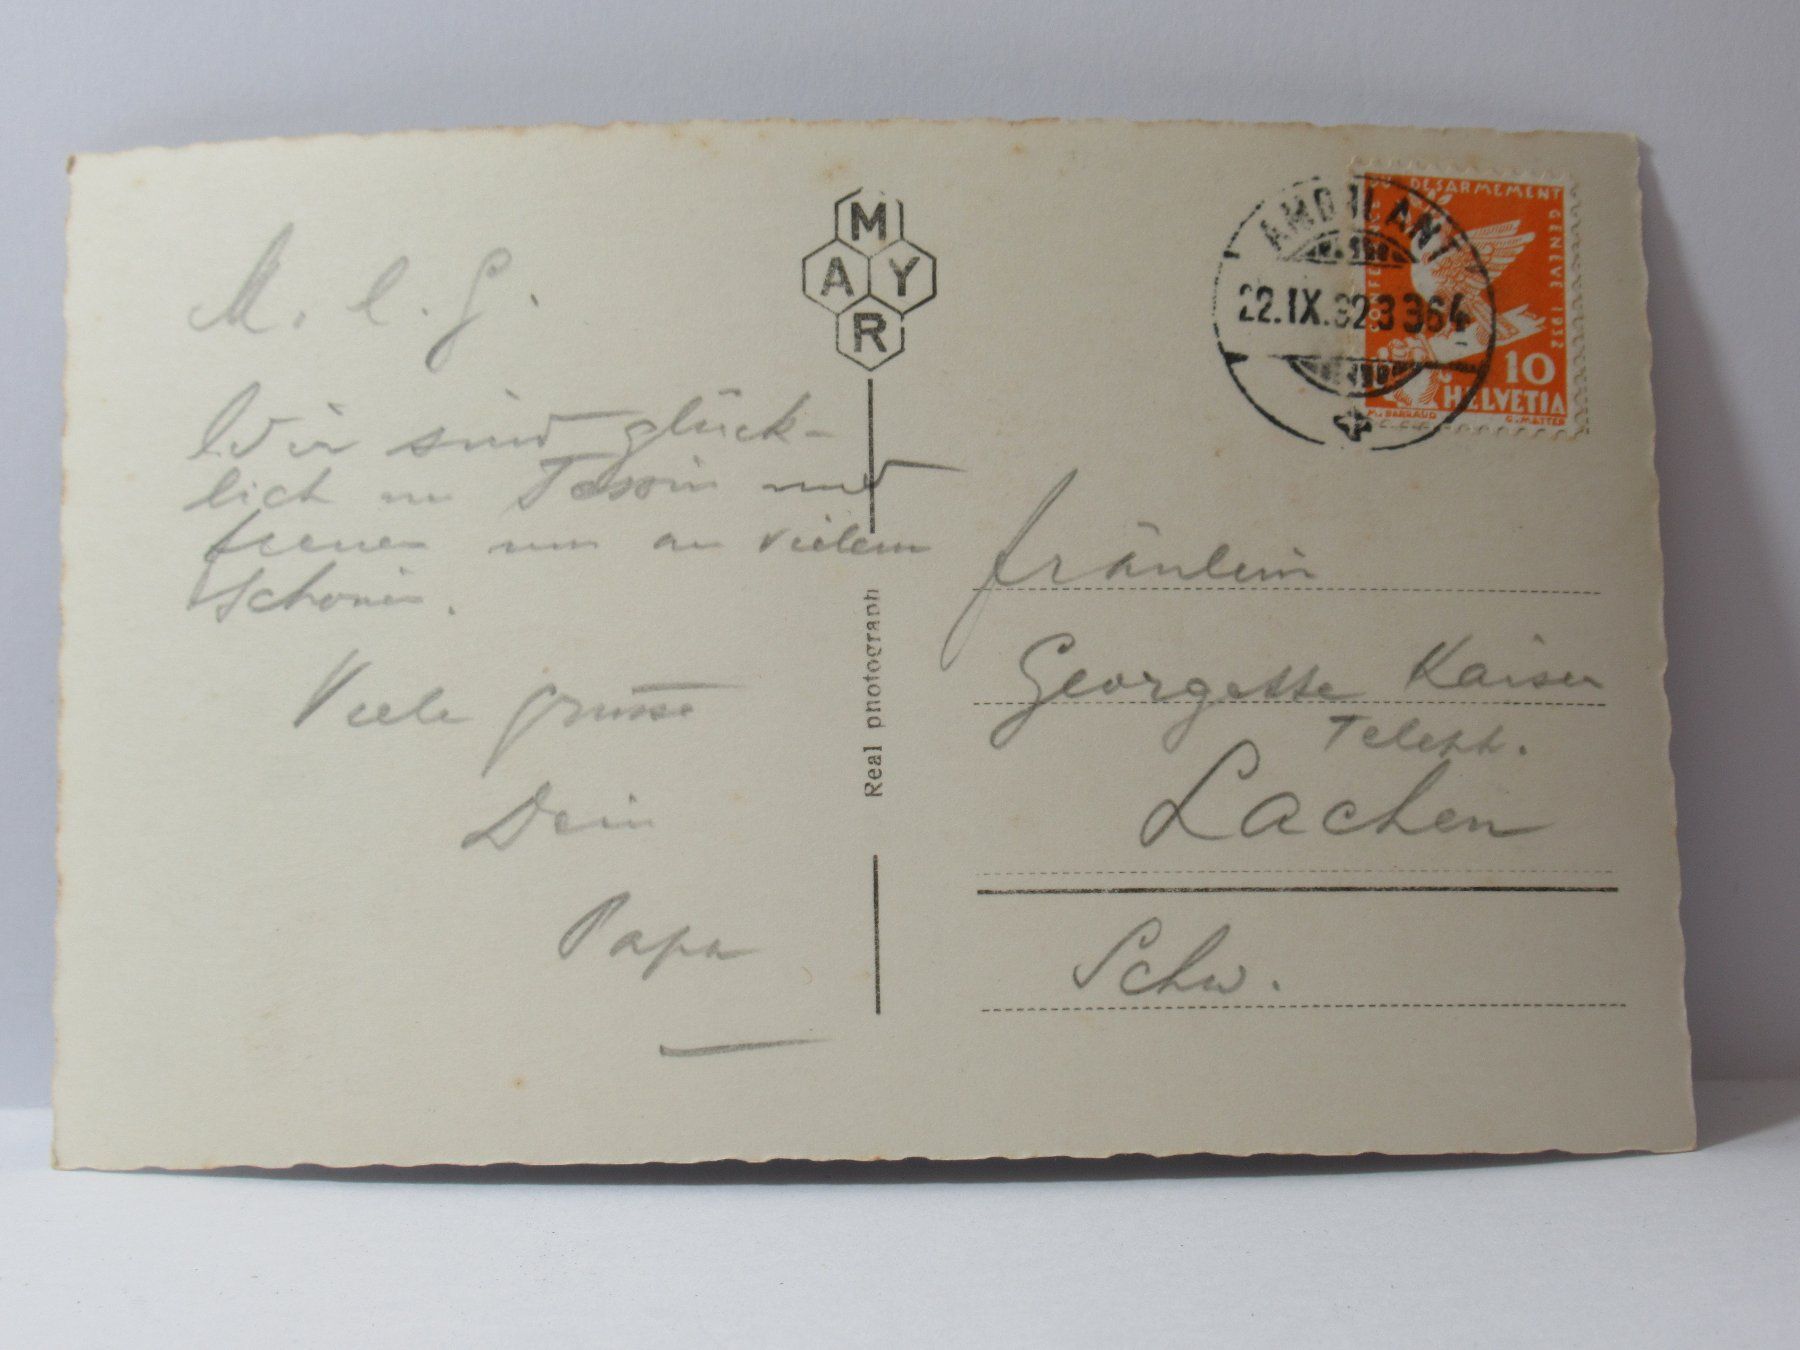 M. l. G.
Wir sind glück-
lich im Tessin und
freuen uns an vielem
Schönen.
Viele Grüsse
Dein
Papa
M
A Y
R
Real photograph
AMBULANT
22.IX.32 3364
CONFERENCE DU DESARMEMENT GENEVE 1932
10
HELVETIA
M. BARRAUD G. MATTER
Fräulein
Georgette Kaiser
Teleph.
Lachen
Schw.